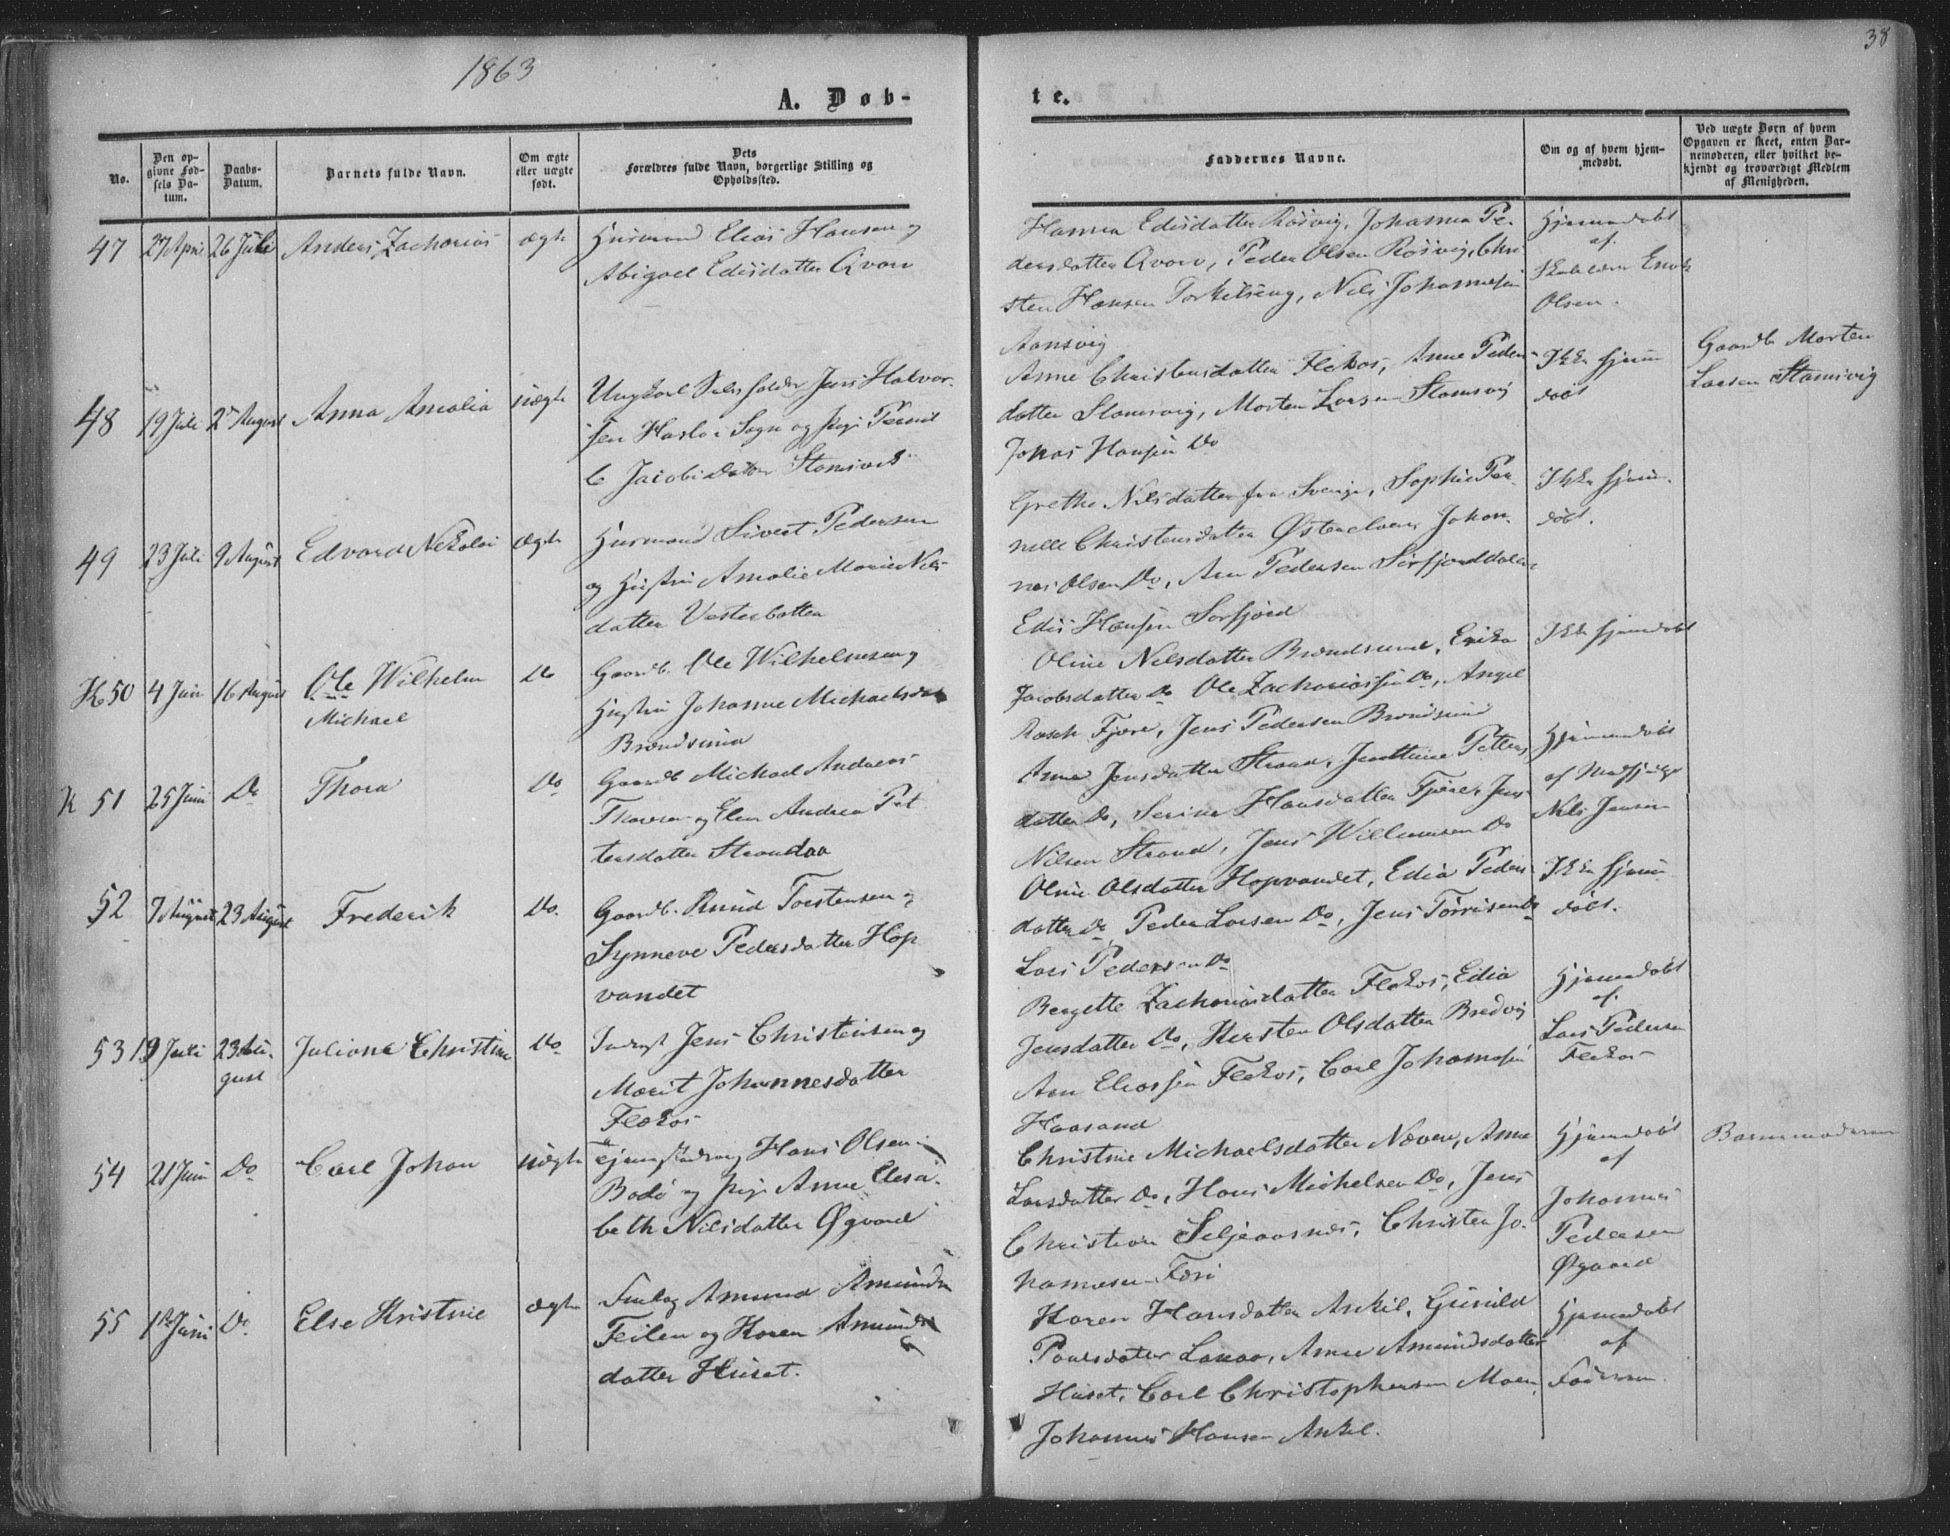 1863
38
A. Døb-
te.
No.
Den op-
givne Fød-
sels Da-
tum.
Daabs-
Datum.
Barnets fulde Navn.
Om ægte
eller uægte
født.
Dets
Forældres fulde Navn, borgerlige Stilling og
Opholdssted.
Faddernes Navne.
Om og af hvem hjem-
medøbt.
Ved uægte Børn af hvem
Opgaven er skeet, enten Bar-
nemoderen, eller hvilket be-
kjendt og troværdigt Medlem
af Menigheden.
47 27 April 26 Juli Anders Zacharias ægte
Husmand Elias Hansen og
Abigael Edisdatter Qvarv
Hanna Edisdatter Røsvig, Johanna Pe-
dersdatter Qvarv, Peder Olsen Røsvig, Chri
sten Hansen Torkilseng, Nils Johannesen
Aansvig
Hjemmedøbt
af
Skolelærer Enok
Olsen.
48 19 Juli 2 August Anna Amalia uægte
Ungkarl Jens Halvor-
sen Haslo i Sogn og Pige Pernil
C Jacobsdatter Stamsvik
Anne Christensdatter Flekos, Anne Peders-
datter Stamsvig, Morten Larsen Stamsvig
Johas Hansen Do
Ikke hjem
døbt
Gaardb. Morten
Larsen Stamsvig
49 23 Juli 9 August Edvard Nikolai ægte
Husmand Sivert Pedersen
og Hustru Amalie Marie Nils-
datter Vesterbotten
Grethe Nilsdatter fra Sverige, Sophie Per-
nelle Christensdatter Østerelven, Johan-
nes Olsen Do, Arn Pedersen Sørfjorddalen
Edis Hansen Sørfjord
Ikke hjem-
døbt.
K 50 4 Juni 16 August Ole Wilhelm
Michael
Do
Gaardb. Ole Wilhelmsen og
Hustru Johanne Michaelsdat
Brændsund
Oline Nilsdatter Brændsund, Erika
Jacobsdatter Do Ole Zachariassen Do, Angel
Rasch Fjære, Jens Pedersen Brændsund
Ikke hjemdøbt
K 51 25 Juni Do Thora Do
Gaardb Michael Andreas
Thoresen og Elen Andrea Pet
tersdatter Strandaa
Anne Jensdatter Strand, Petters
datter Do, Serina Hansdatter Fjære, Jens
Nilsen Strand, Jens Willumsen Do
Hjemmedøbt
af
Nils Jensen
52 7 August 23 August Frederik Do.
Gaardb. Knud Torstensen og
Synneve Pedersdatter Hop
vandet
Oline Olsdatter Hopvandet, Edia Peders
datter Do Peder Larsen Do, Jens Tørrisen Do
Lars Pedersen Do
Ikke hjem
døbt.
53 19 Juli 23 Au-
gust
Juliane Christine Do
Inderst Jens Christensen og
Marit Johannesdatter
Flekos
Bergette Zachariasdatter Flekos, Edia
Jensdatter Do, Kersten Olsdatter Bredvig
Arn Eliassen Flekos, Carl Johannesen
Haasand
Hjemmedøbt
af
Lars Pedersen
Flekos
54 21 Juni Do Carl Johan uægte
Hans Olsen
Bodø og Pige Anne Elisa-
beth Nilsdatter Øgaard
Christine Michaelsdatter Næveren, Anne
Larsdatter Do, Hans Michelsen Do, Jens
Christian Seljeaasnes, Christen Jo-
hannesen Færi
Hjemmedøbt
af
Johannes
Pedersen
Øgaard
Barnemoderen
55 18 Juni Do Else Kristine ægte
Inderst Amund Amunds
Feilen og Karen Amunds
datter Huset.
Karen Hansdatter Ankil, Gunild
Paulsdatter Lakaa, Anne Amundsdatter
Huset, Carl Christophersen Moen,
Johannes Hansen Ankil.
Hjemmedøbt
af
Faderen